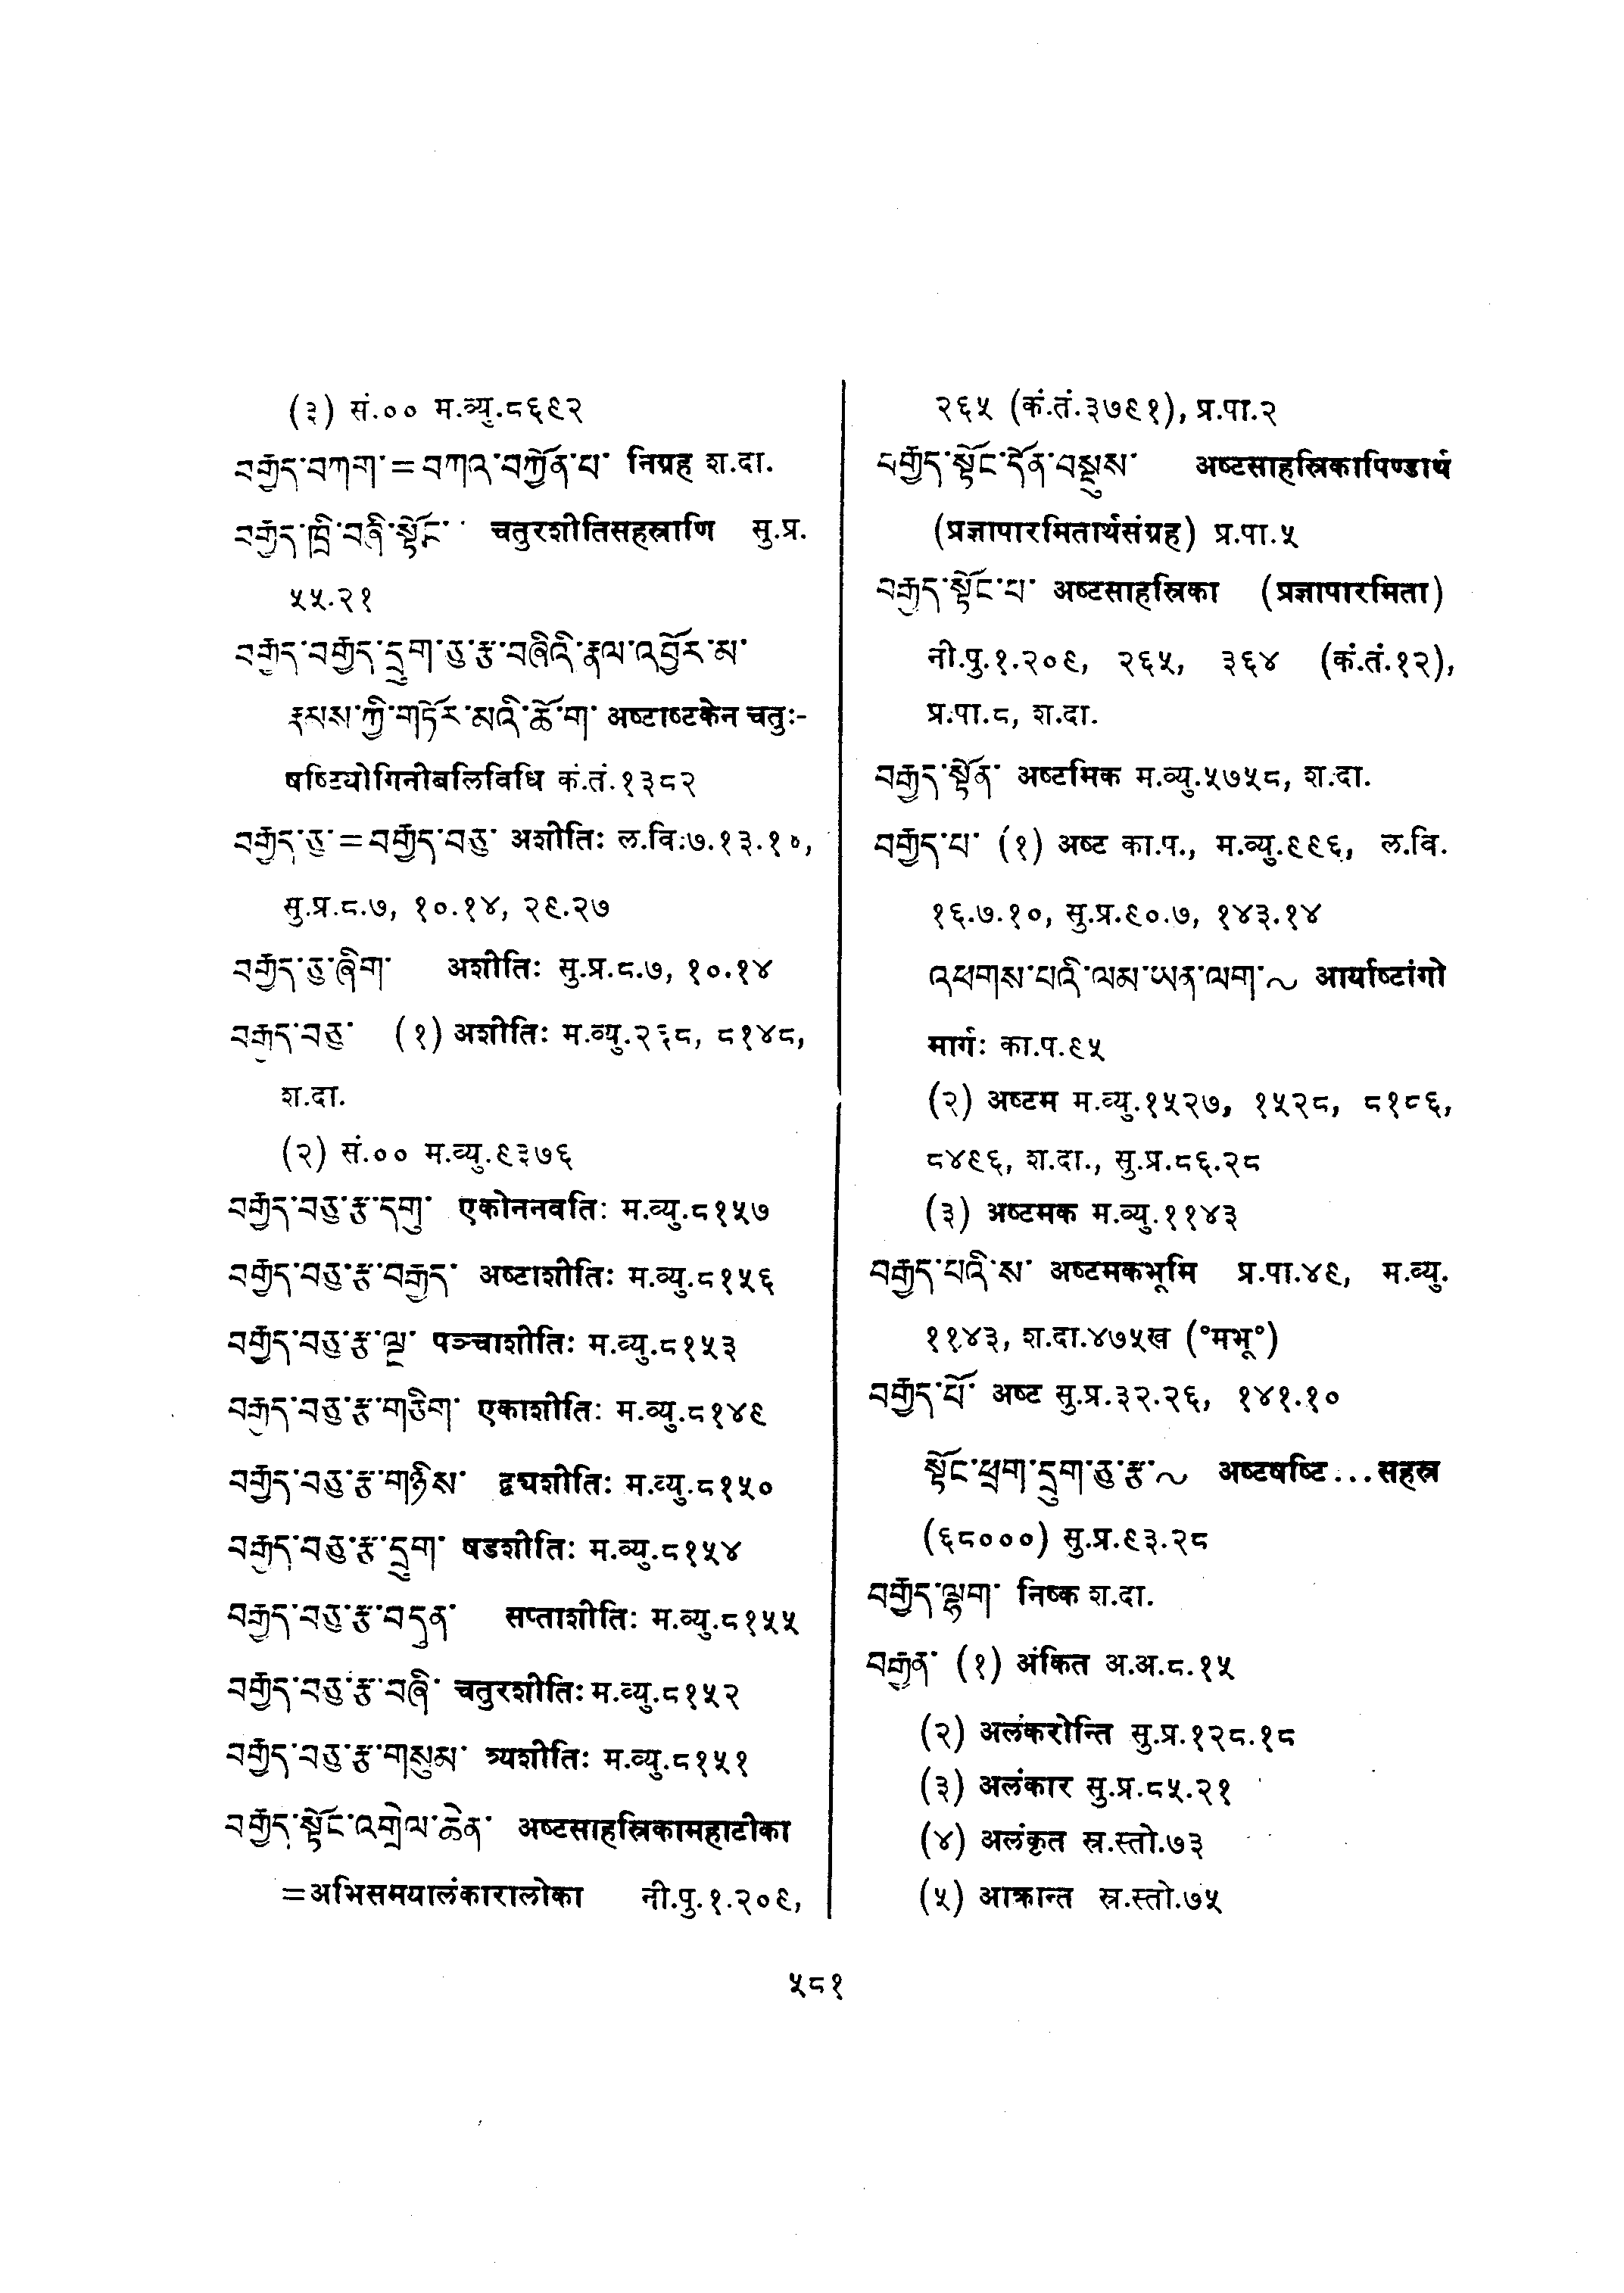 (३) सं.०० म.व्यु.८६९२
བཀྱོད་བཀག་ = བཀའ་བཀྱོན་པ་ निग्रह श.दा.
བརྒྱད་ཁྲི་བཞི་སྟོང་ चतुरशीतिसहस्राणि सु.प्र.
५५.२१
བརྒྱད་བརྒྱད་དྲུག་ཅུ་རྩ་བཞིའི་རྣལ་འབྱོར་མ་
རྣམས་ཀྱི་གཏོར་མའི་ཆོ་ག་ अष्टाष्टकेन चतुः-
षष्टियोगिनीबलिविधि कं.तं.१३८२
བརྒྱད་ཅུ་ = བརྒྱད་བཅུ་ अशीतिः ल.वि.७.१३.१०,
सु.प्र.८.७, १०.१४, २९.२७
བརྒྱད་ཅུ་ཞིག་ अशीतिः सु.प्र.८.७, १०.१४
བརྒྱད་བཅུ་ (१) अशीतिः म.व्यु.२६८, ८१४८,
श.दा.
(२) सं.०० म.व्यु.९३७६
བརྒྱད་བཅུ་རྩ་དགུ་ एकोननवतिः म.व्यु.८१५७
བརྒྱད་བཅུ་རྩ་བརྒྱད་ अष्टाशीतिः म.व्यु.८१५६
བརྒྱད་བཅུ་རྩ་ལྔ་ पञ्चाशीतिः म.व्यु.८१५३
བརྒྱད་བཅུ་རྩ་གཅིག་ एकाशीतिः म.व्यु.८१४९
བརྒྱད་བཅུ་རྩ་གཉིས་ द्वयशीतिः म.व्यु.८१५०
བརྒྱད་བཅུ་རྩ་དྲུག་ षडशीतिः म.व्यु.८१५४
བརྒྱད་བཅུ་རྩ་བདུན་ सप्ताशीतिः म.व्यु.८१५५
བརྒྱད་བཅུ་རྩ་བཞི་ चतुरशीतिः म.व्यु.८१५२
བརྒྱད་བཅུ་རྩ་གསུམ་ त्र्यशीतिः म.व्यु.८१५१
བརྒྱད་སྟོང་འགྲེལ་ཆེན་ अष्टसाहस्रिकामहाटीका
=अभिसमयालंकारालोका नी.पु.१.२०९,
२६५ (कं.तं.३७९१), प्र.पा.२
བརྒྱད་སྟོང་དོན་བསྡུས་ अष्टसाहस्रिकापिण्डार्थ
(प्रज्ञापारमितार्थसंग्रह) प्र.पा.५
བརྒྱད་སྟོང་པ་ अष्टसाहस्रिका (प्रज्ञापारमिता)
नी.पु.१.२०९, २६५, ३६४ (कं.तं.१२),
प्र.पा.८, श.दा.
བརྒྱད་སྟོན་ अष्टमिक म.व्यु.५७५८, श.दा.
བརྒྱད་པ་ (१) अष्ट का.प., म.व्यु.९९६, ल.वि.
१६.७.१०, सु.प्र.९०.७, १४३.१४
འཕགས་པའི་ལམ་ཡན་ལག་~ आर्याष्टांगो
मार्गः का.प.९५
(२) अष्टम म.व्यु.१५२७, १५२८, ८१८६,
८४९६, श.दा., सु.प्र.८६.२८
(३) अष्टमक म.व्यु.११४३
བརྒྱད་པའི་ས་ अष्टमकभूमि प्र.पा.४९, म.व्यु.
११४३, श.दा.४७५ख (°मभू°)
བརྒྱད་པོ་ अष्ट सु.प्र.३२.२६, १४१.१०
སྟོང་ཕྲག་དྲུག་ཅུ་རྩ་~ अष्टषष्टि...सहस्र
(६८०००) सु.प्र.९३.२८
བརྒྱད་ལྷག་ निष्क श.दा.
བརྒྱན་ (१) अंकित अ.अ.८.१५
(२) अलंकरोन्ति सु.प्र.१२८.१८
(३) अलंकार सु.प्र.८५.२१
(४) अलंकृत स्र.स्तो.७३
(५) आक्रान्त स्र.स्तो.७५
५८१